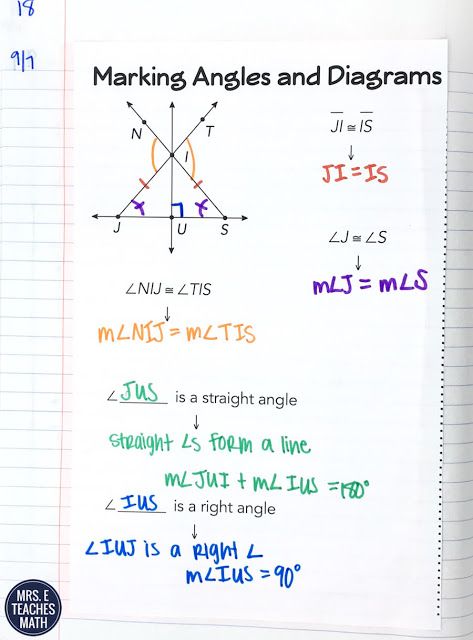 18
9/7
Marking Angles and Diagrams
N
T
I
J
U
S
JI ≅ IS
JI = IS
∠J ≅ ∠S
m∠J = m∠S
∠NIJ ≅ ∠TIS
m∠NIJ = m∠TIS
∠ JUS is a straight angle
straight ∠s form a line
m∠JUI + m∠IUS = 180°
∠ IUS is a right angle
∠IUJ is a right ∠
m∠IUS = 90°
MRS. E
TEACHES
MATH